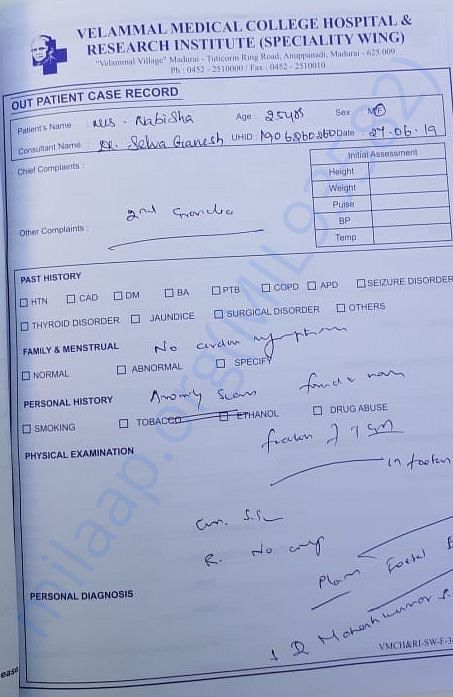 VELAMMAL MEDICAL COLLEGE HOSPITAL &
RESEARCH INSTITUTE (SPECIALITY WING)
"Velammal Village" Madurai - Tuticorin Ring Road, Anuppanadi, Madurai - 625 009
Ph : 0452 - 2510000 / Fax : 0452 - 2510010
OUT PATIENT CASE RECORD
Patient's Name : Mrs. Nabisha Age : 25yrs Sex : M/F
Consultant Name : Dr. Selva Ganesh UHID : 1906260260 Date : 27.06.19
Chief Complaints :
Initial Assessment
Height
Weight
Pulse
BP
Temp
2nd Gravida
Other Complaints :
PAST HISTORY
HTN CAD DM BA PTB COPD APD SEIZURE DISORDER
THYROID DISORDER JAUNDICE SURGICAL DISORDER OTHERS
FAMILY & MENSTRUAL No symptoms
NORMAL ABNORMAL SPECIFY
PERSONAL HISTORY Anomaly Scan
SMOKING TOBACCO ETHANOL DRUG ABUSE
PHYSICAL EXAMINATION
R. No
Plan Foetal
PERSONAL DIAGNOSIS
VMCH&RI-SW-F-3
ease
milaap.org(MIL93582)